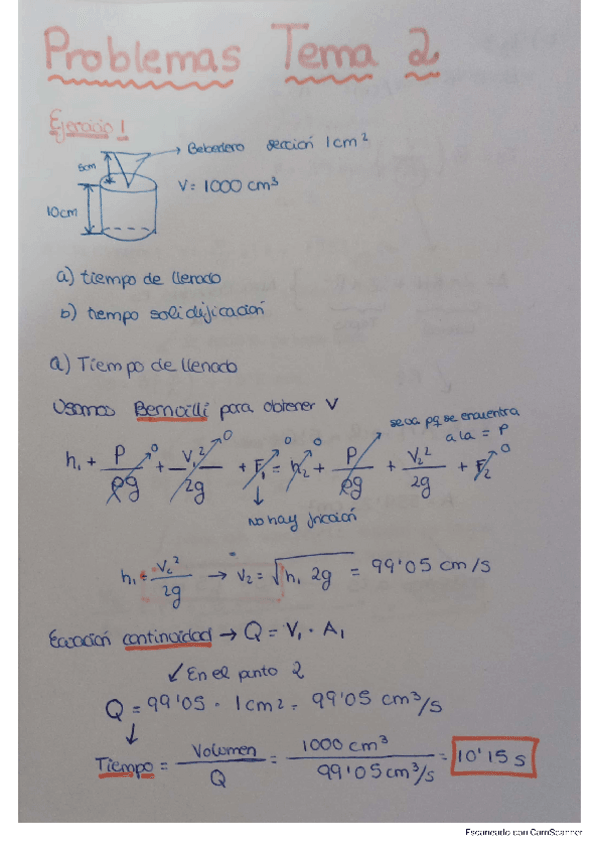 Problemas Tema 2
Ejercicio 1
Bebedero sección 1cm²
5cm
V = 1000 cm³
10cm
a) tiempo de llenado
b) tiempo solidificación
a) Tiempo de llenado
Usamos Bernoilli para obtener V
se va pq se encuentra
a la = P
h₁ + P/ρg + V₁²/2g + F₁ = h₂ + P/ρg + V₂²/2g + F₂
0 0 0 0 0
no hay fricción
h₁ = V₂²/2g → V₂ = √h₁ 2g = 99'05 cm/s
Ecuación continuidad → Q = V₁ · A₁
En el punto 2
Q = 99'05 · 1cm² = 99'05 cm³/s
Tiempo = Volumen/Q = 1000 cm³/99'05 cm³/s = 10'15 s
Escaneado con CamScanner